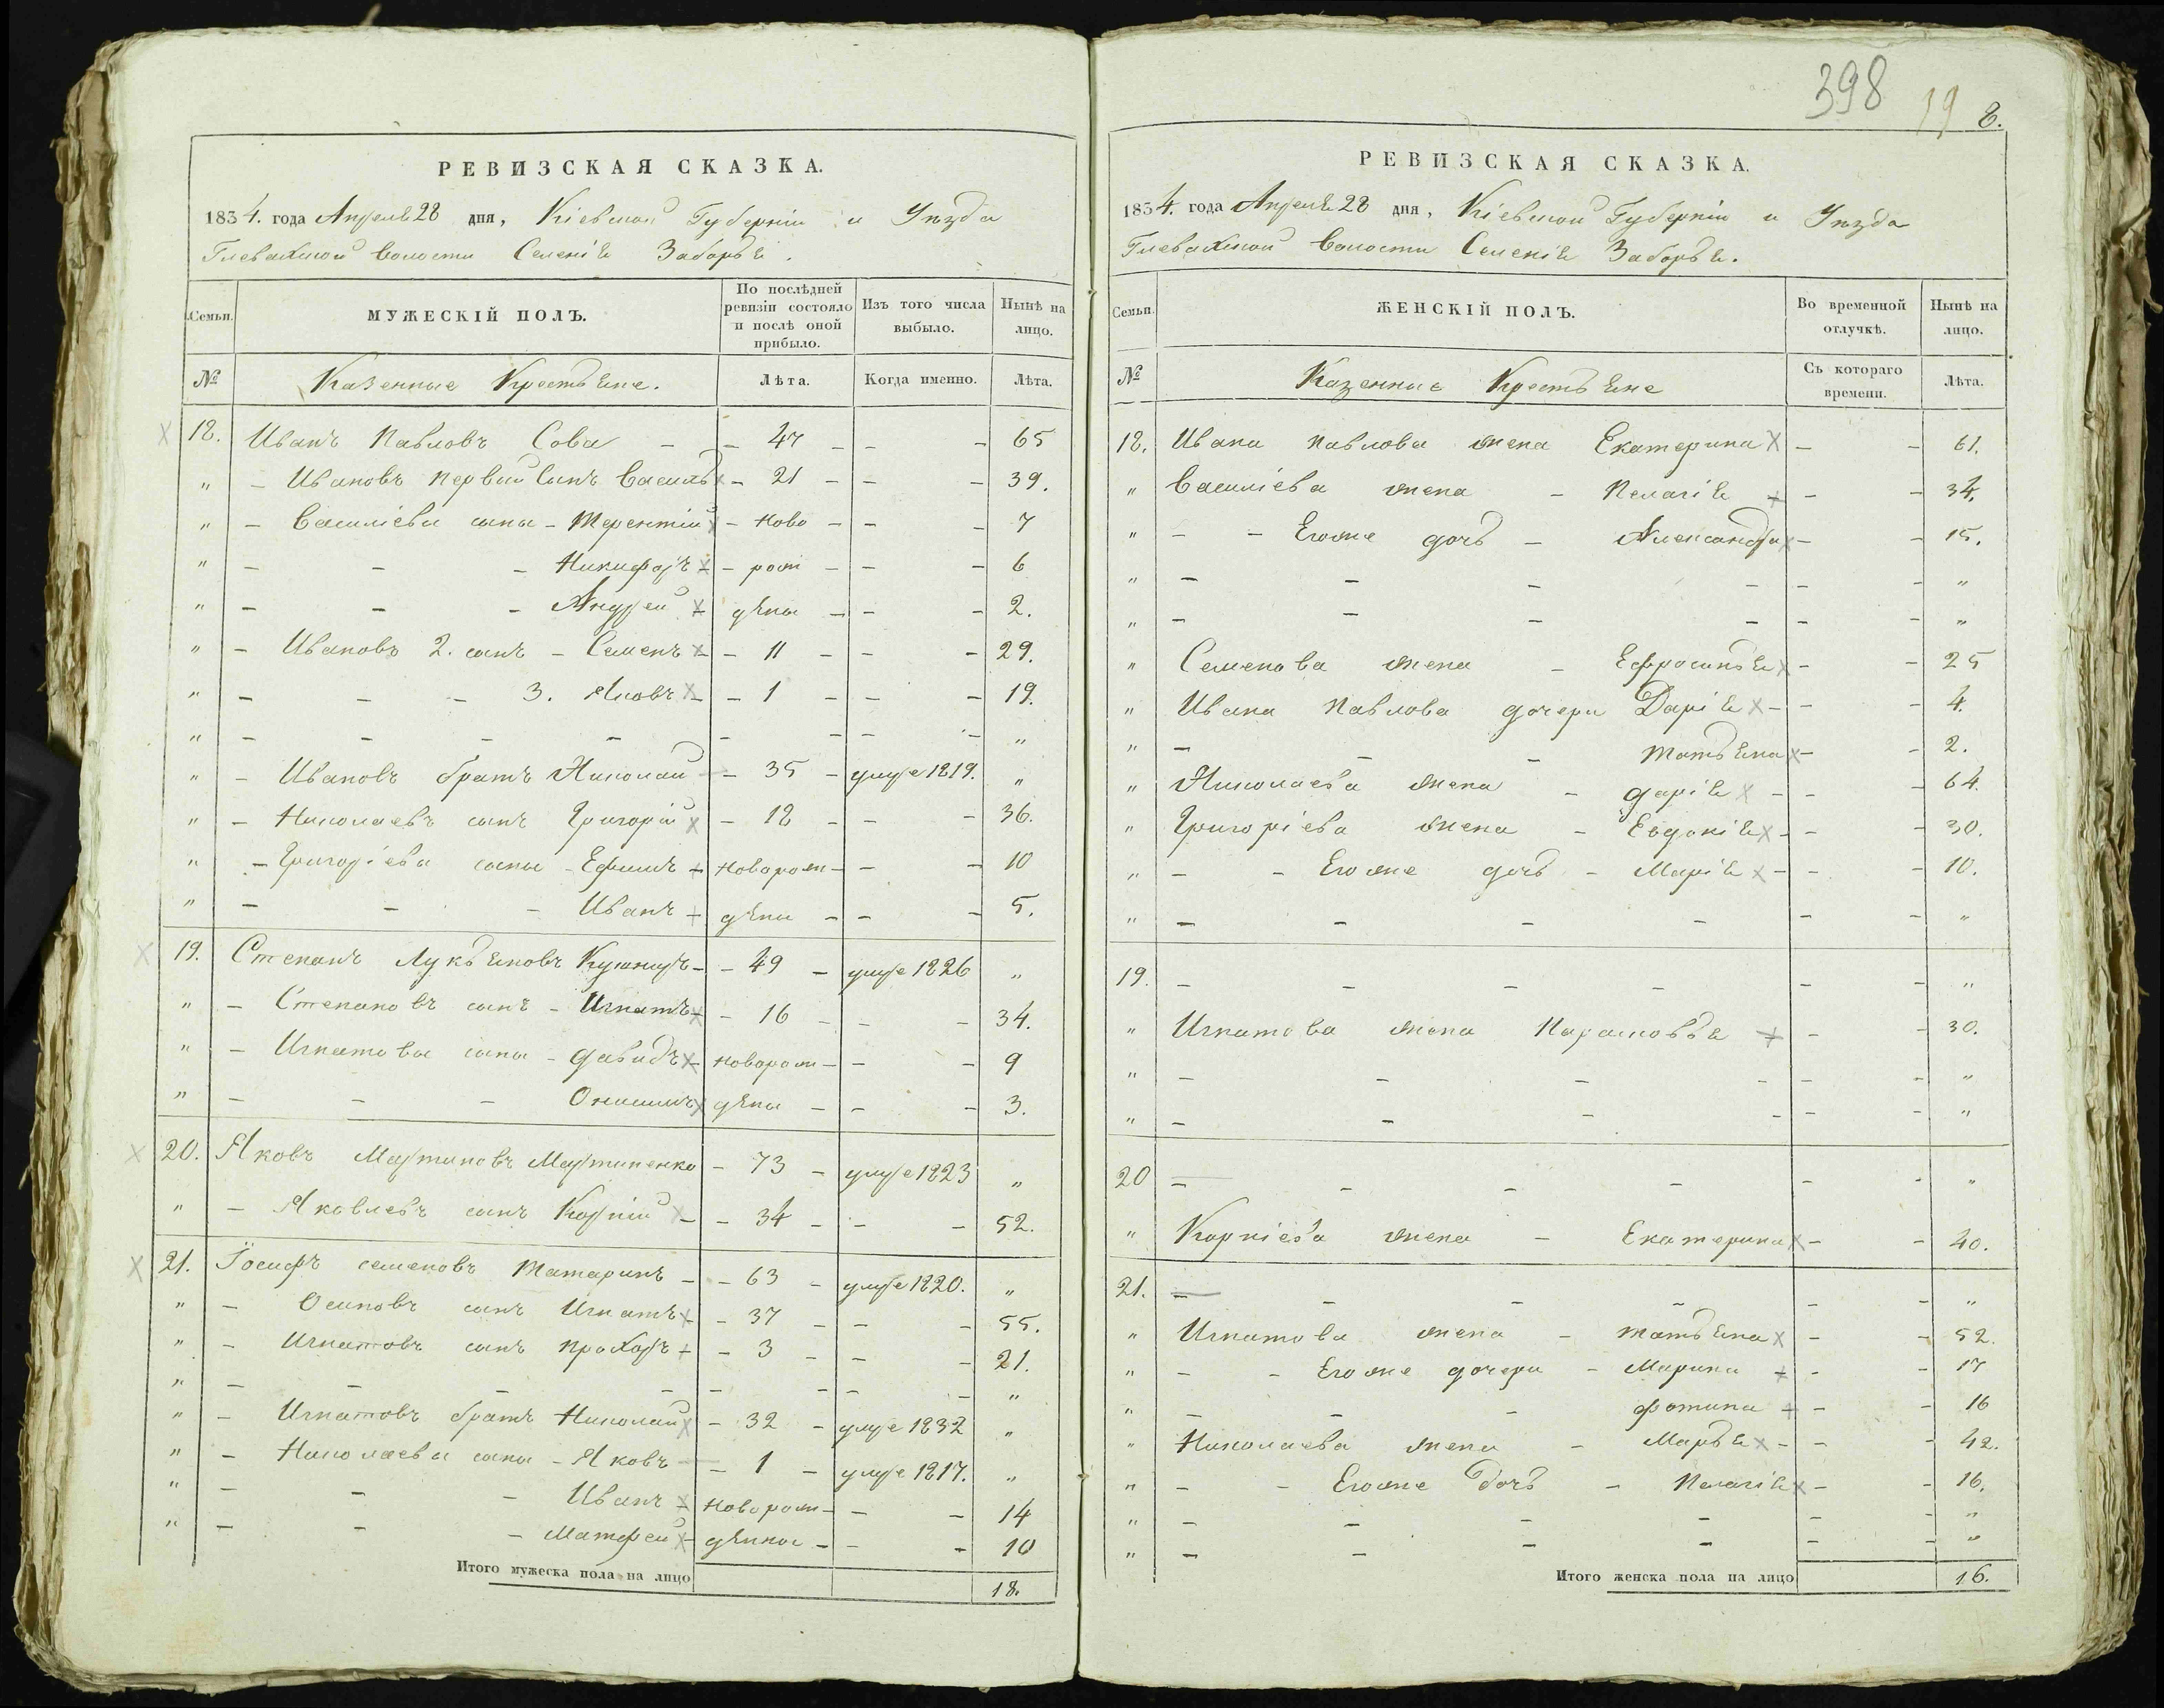 РЕВИЗСКАЯ СКАЗКА.
1834. года Апреля 28 дня, Кіевской Губерніи и Уѣзда
Глевахской Волости Селенія Заборья.
Семьи. МУЖЕСКІЙ ПОЛЪ. По послѣдней ревизіи состояло и послѣ оной прибыло. Изъ того числа выбыло. Нынѣ на лицо.
№ Казенные Крестьяне. Лѣта. Когда именно. Лѣта.
18. Иванъ Павловъ Сова - - 47 - - - 65
" - Ивановъ первый сынъ Василь - 21 - - - 39.
" - Василіевы сыны - Терентій - ново - - - 7
" - - - Никифоръ - рож - - - 6
" - - - Андрей - дены - - - 2.
" - Ивановъ 2. сынъ - Семенъ - 11 - - - 29.
" - - - 3. Яковъ - 1 - - - 19.
" - - - - - - - - "
" - Ивановъ братъ Николай - 35 - умре 1819. "
" - Николаевъ сынъ Григорій - 18 - - - 36.
" - Григоріевы сыны - Ефимъ - новорож - - - 10
" - - - Иванъ - дены - - - 5.
19. Степанъ Лукьяновъ Кушниръ - - 49 - умре 1826 "
" - Степановъ сынъ - Игнатъ - 16 - - - 34.
" - Игнатовы сыны - Давидъ - новорож - - - 9
" - - - Онисимъ дены - - - 3.
20. Яковъ Мартиновъ Мартиненко - 73 - умре 1823 "
" - Яковлевъ сынъ Корній - - 34 - - - 52.
21. Іосифъ семеновъ Татаринъ - - 63 - умре 1820. "
" - Осиповъ сынъ Игнатъ - 37 - - - 55.
" - Игнатовъ сынъ Прохоръ - - 3 - - - 21.
" - - - - - - - - "
" - Игнатовъ братъ Николай - 32 - умре 1832 "
" - Николаевы сыны - Яковъ - 1 - умре 1817. "
" - - - Иванъ - новорож - - - 14
" - - - Матфей - денные - - - 10
Итого мужеска пола на лицо 18.
398 19 8.
РЕВИЗСКАЯ СКАЗКА.
1834. года Апреля 28 дня, Кіевской Губерніи и Уѣзда
Глевахской Волости Селенія Заборья.
Семьи. ЖЕНСКІЙ ПОЛЪ. Во временной отлучкѣ. Нынѣ на лицо.
№ Казенные Крестьяне Съ котораго времени. Лѣта.
18. Ивана Павлова жена Екатерина - - 61.
" Василіева жена - Пелагія - - 34.
" - - Егоже дочь - Александра - - 15.
" - - - - - - "
" - - - - - - "
" Семенова жена - Ефросинья - - 25
" Ивана Павлова дочери Дарія - - - 4.
" - - - Татьяна - - 2.
" Николаева жена - Дарія - - - 64.
" Григоріева жена - Евдокія - - - 30.
" - - Егоже дочь - Марія - - - 10.
" - - - - - - "
19. - - - - - - "
" Игнатова жена Парасковья - - 30.
" - - - - - - "
" - - - - - - "
20 - - - - - - "
" Корніева жена - Екатерина - - 40.
21. - - - - - - "
" Игнатова жена - Татьяна - - 52.
" - - Егоже дочери - Марина - - 17
" - - - Фотина - - 16
" Николаева жена - Марья - - - 42.
" - - Егоже дочь - Пелагія - - 16.
" - - - - - - "
" - - - - - - "
Итого женска пола на лицо 16.